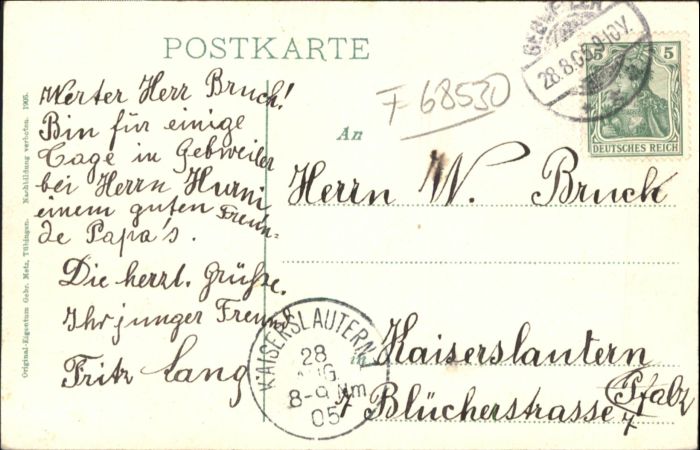 POSTKARTE
Werter Herr Bruch!
Bin für einige
Tage in Gebweiler
bei Herrn Hurni
einem guten Freun-
de Papa's.
Die herzl. Grüsse.
Ihr junger Freund
Fritz Lang
F 68530
An
Herrn W. Bruch
Kaiserslautern
Pfalz
Blücherstrasse 7
GEBWEILER
28.8.05
5
5
DEUTSCHES REICH
KAISERSLAUTERN
28
AUG.
8-9 Nm
05
Original-Eigentum Gebr. Metz, Tübingen. Nachbildung verboten. 1905.